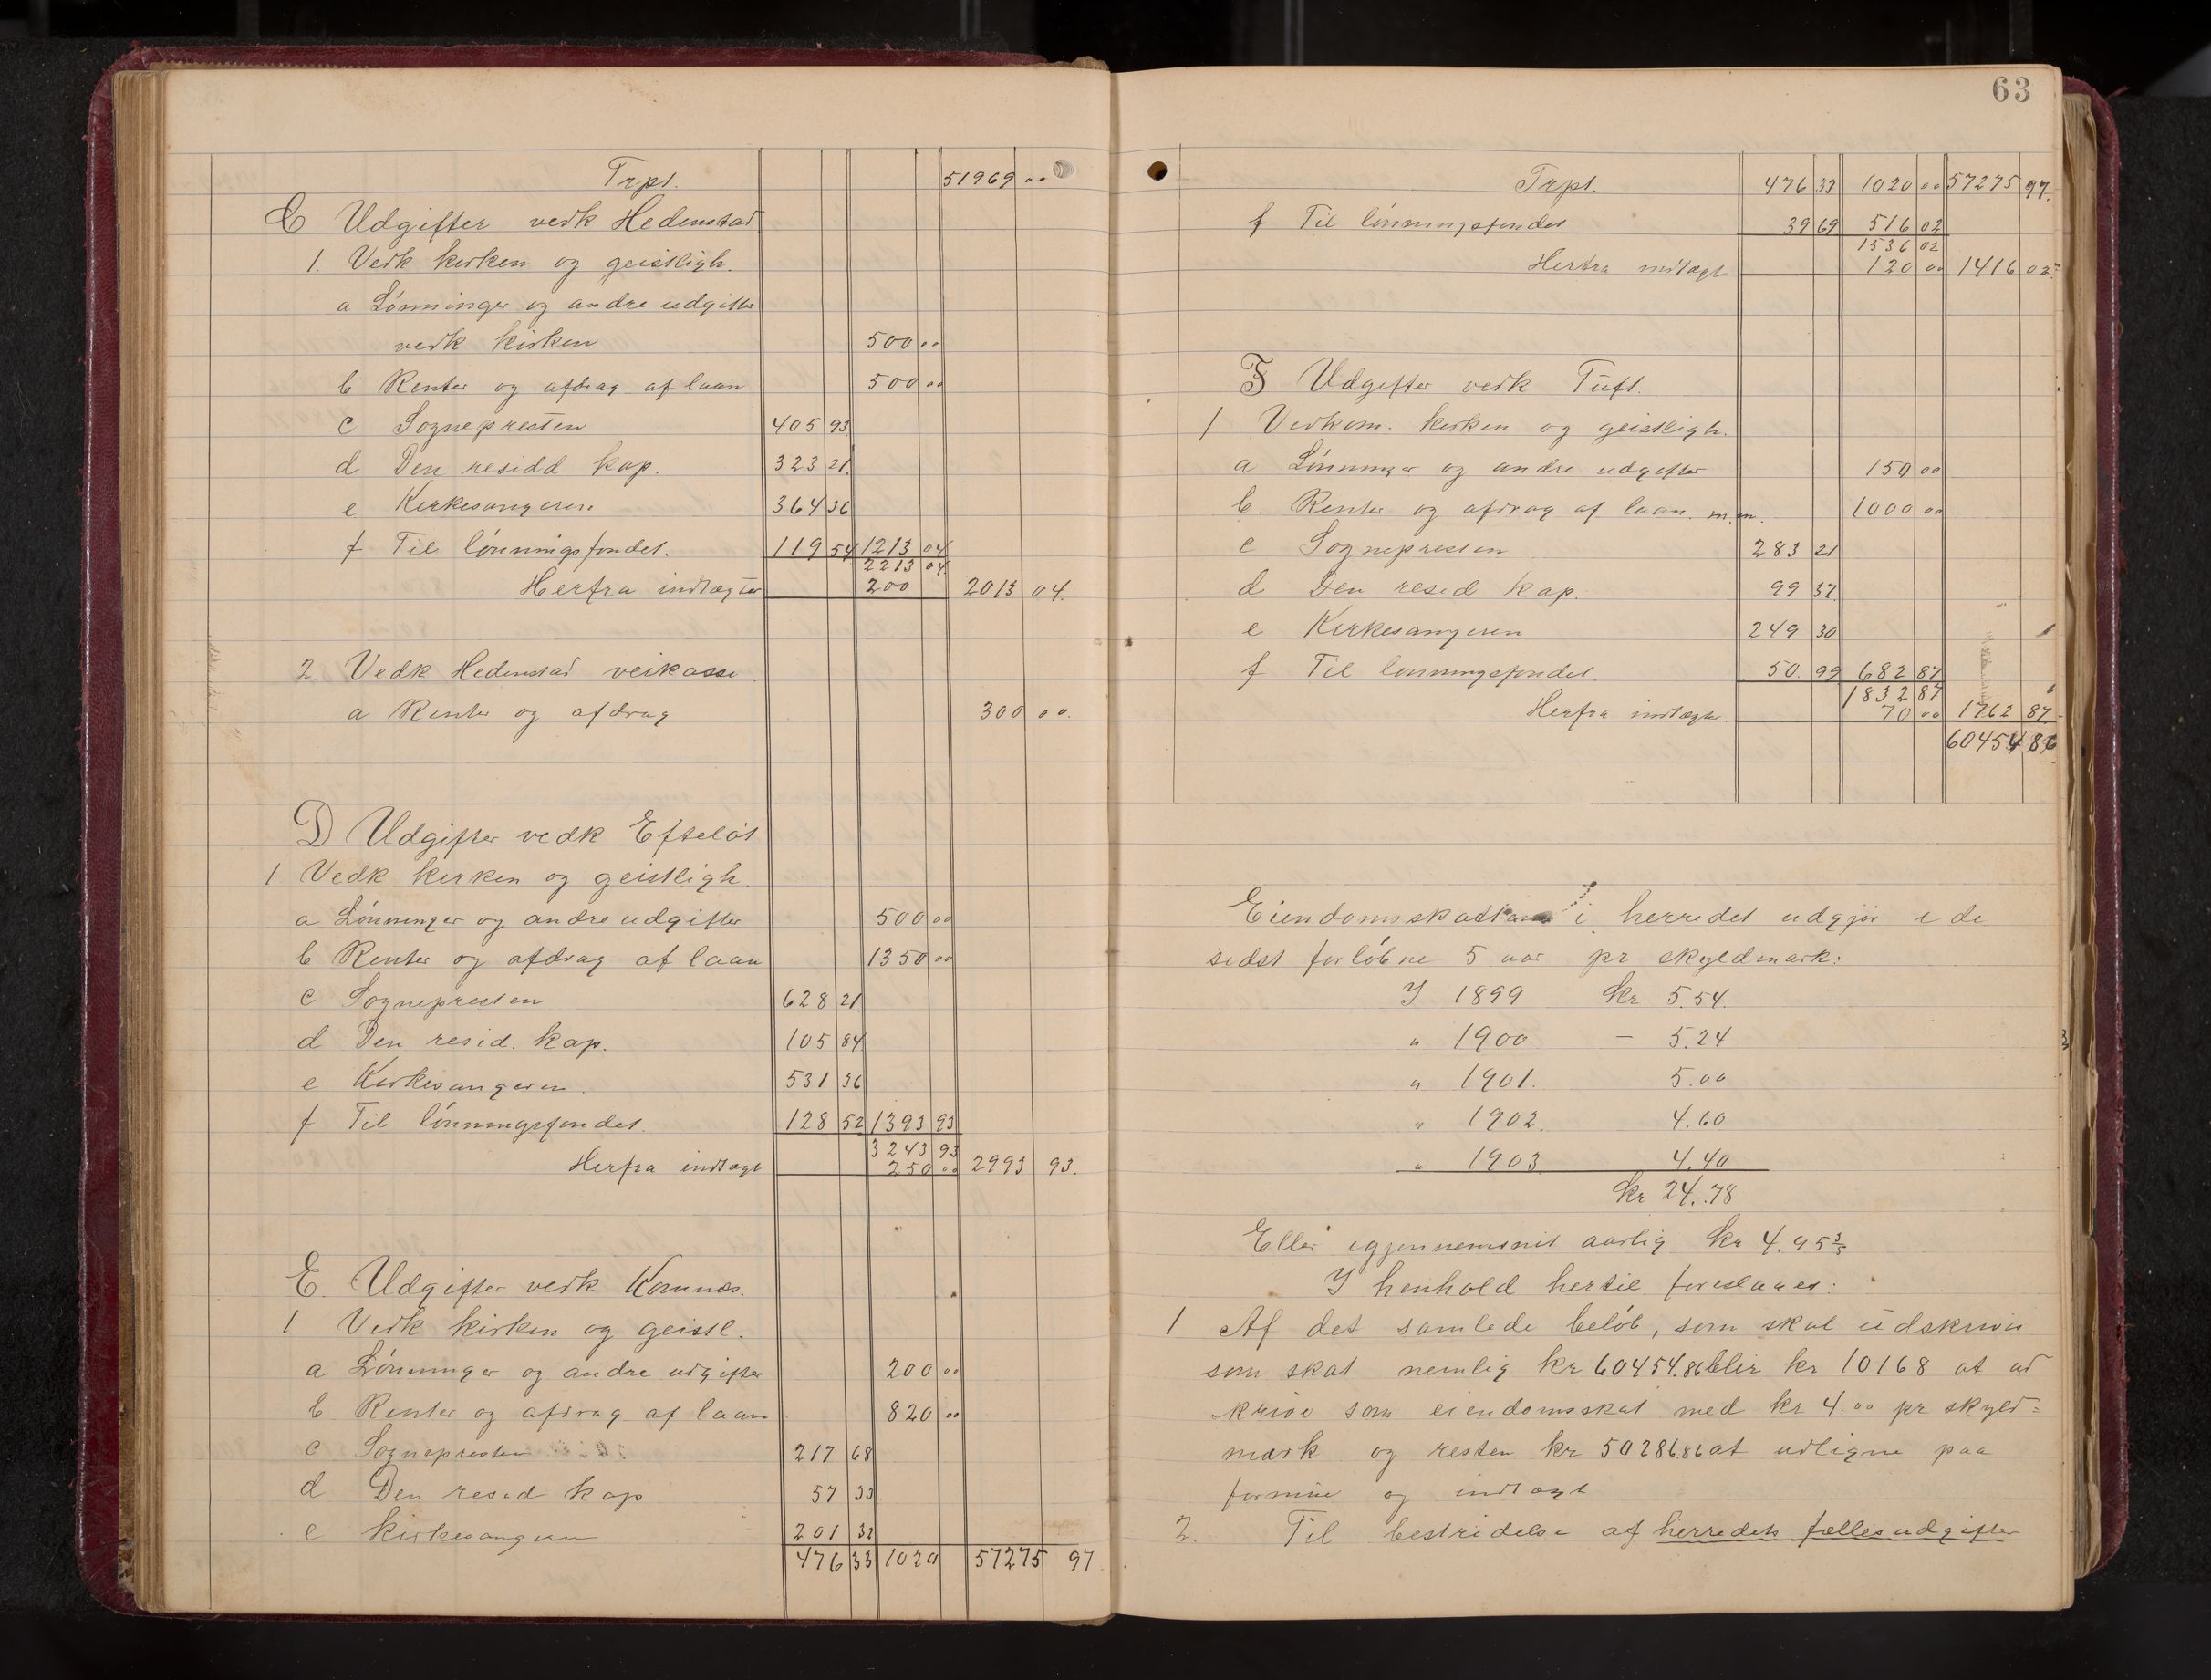 Trpt. 51969 "
C Udgifter vedk Hedenstad
1. Vedk kirken og geistligh.
a Lønninger og andre udgifter
vedk kirken 500 "
b Renter og afdrag af laan 500 "
c Sognepresten 405 93
d Den residd kap. 323 21
e Kirkesangeren 364 36
f Til lønningsfondet. 119 54 1213 04
2213 04
Herfra indtægter 200 2013 04.
2 Vedk Hedenstad veikasse
a Renter og afdrag 300 00.
D Udgifter vedk Efteløt
1 Vedk kirken og geistligh.
a Lønninger og andre udgifter 500 00
b Renter og afdrag af laan 1350 00
c Sognepresten 628 21
d Den resid. kap. 105 84
e Kirkesangeren 531 36
f Til lønningsfondet. 128 52 1393 93
3243 93
Herfra indtægt 250 00 2993 93.
E. Udgifter vedk Komnæs.
1 Vedk kirken og geistl.
a Lønninger og andre udgifter 200 00
b Renter og afdrag af laan 820 "
c Sognepresten 217 68
d Den resid kap 57 33
e kirkesangeren 201 32
476 33 1020 57275 97
63
Trpt. 476 33 1020 00 57275 97.
f Til lønningsfondet 39 69 516 02
1536 02
Herfra indtægt 120 00 1416 02
F Udgifter vedk Tuft.
1 Vedkom. kirken og geistligh.
a Lønninger og andre udgifter 150 00
b. Renter og afdrag af laan. m.m. 1000 00
c Sognepresten 283 21
d Den resid kap. 99 37
e Kirkesangeren 249 30
f Til lønningsfondet. 50. 99 682 87
1832 87
Herfra indtægter 70 00 1762 87
60454 86
Eiendomsskatten i herredet udgjør i de
sidst forløbne 5 aar pr skyldmark:
I 1899 kr 5.54.
" 1900 — 5.24
" 1901. 5.00
" 1902. 4.60
" 1903 4.40
kr 24.78
Eller igjennemsnit aarlig kr 4.95 3/5
I henhold hertil foreslaaes:
1 Af det samlede beløb, som skal udskrives
som skat nemlig kr 60454.86 blir kr 10168 at ud
skrive som eiendomsskat med kr 4.00 pr skyld=
mark og resten kr 50286.86 at udligne paa
formue og indtægt
2. Til bestridelse af herredets fælles udgifter